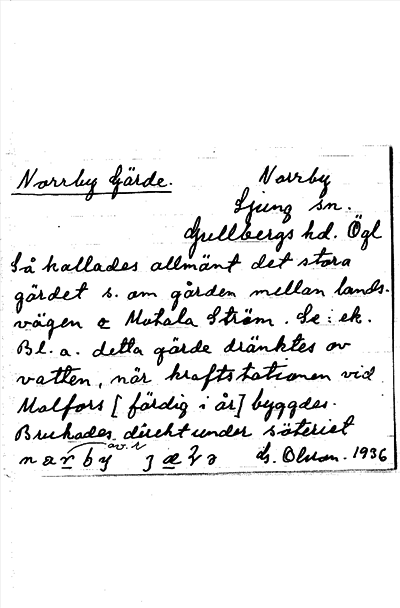 Norrby Gärde. Norrby
Ljung sn.
Gullbergs hd. Ögl
Så kallades allmänt det stora
gärdet s. om gården mellan lands-
vägen & Motala Ström. Se: ek.
Bl. a. detta gärde dränktes av
vatten, när kraftstationen vid
Malfors [färdig i år] byggdes.
Brukades direkt under säteriet
av. r
narby
G. Olsson. 1936